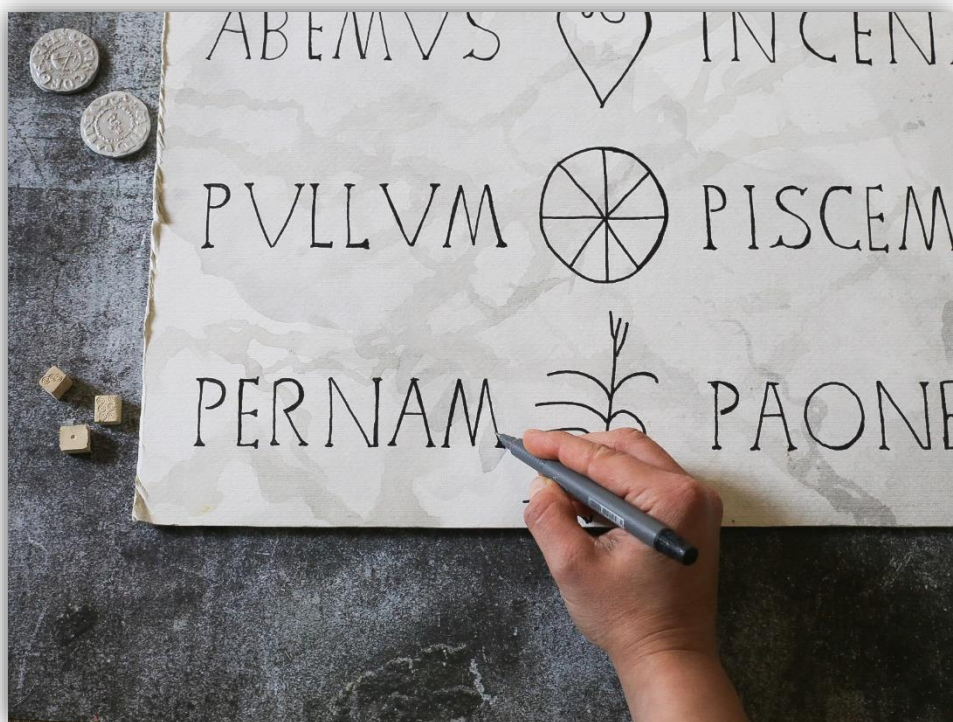 ABEMVS INCEN
PVLLVM PISCEM
PERNAM PAONE